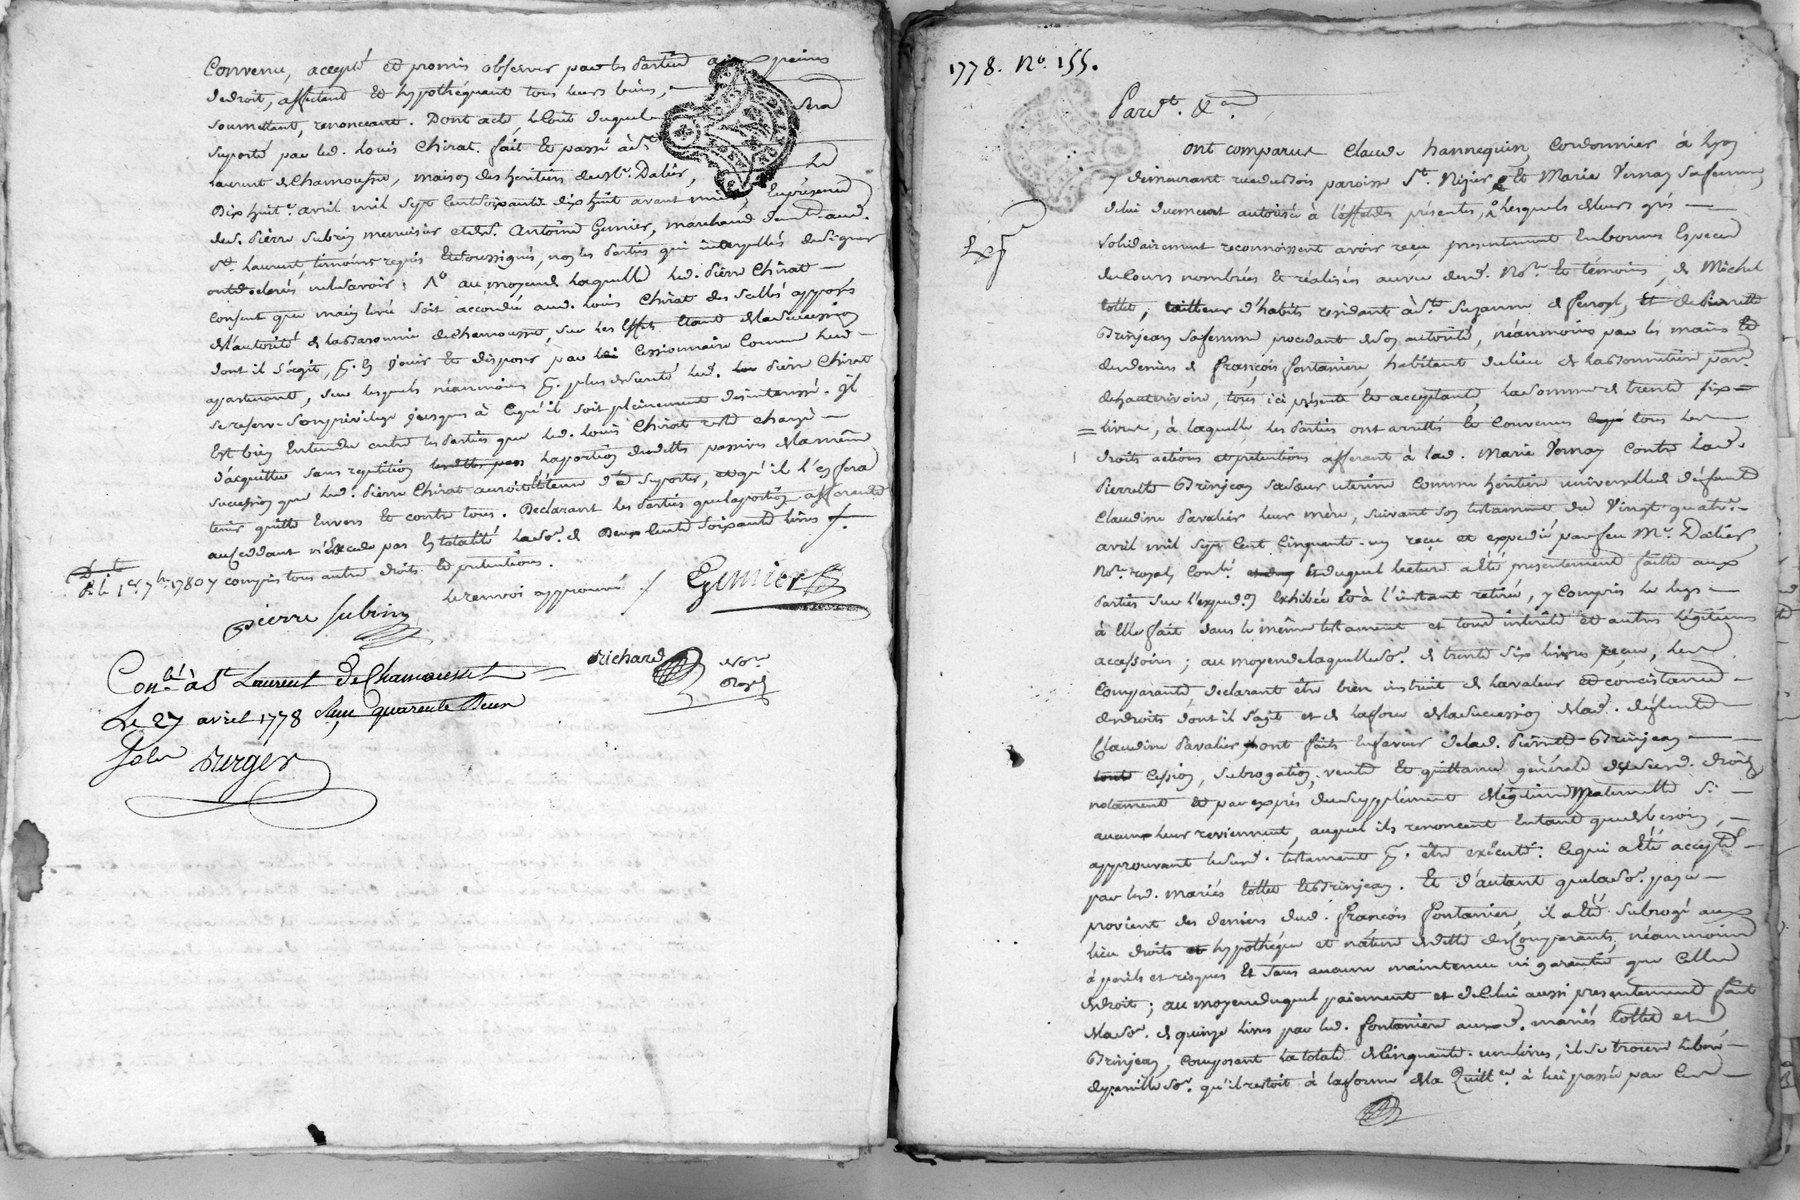 Convenu, accepté et promis observer par les Parties aux peines
de droit, affectant et hypothéquant tous leurs biens,
soumettant, renonceant. Dont acte le Coût duquel sera
suporté par led. Louis Chirat. fait et passé à St.
Laurent de Chamousset, maison des heritiers de Me. Dalier, Le
Dix huit. avril mil sept Cent soixante dix huit avant midi, En présence
de s. Pierre Subrin menuisier et de s. Antoine Gimier, marchand demt. aud.
St. Laurent, temoins requis et soussignés, non les Parties qui interpellés de signer
ont déclarés ne le savoir; au moyend Laquelle led. Pierre Chirat
consent que main levée soit accordée aud. Louis Chirat des scellés apposés
de l'autorité de la Baronnie de Chamousset, sur les effets étant de la succession
dont il s'agit, p. en jouir et disposer par lui cessionnaire comme lui
apartenant, sur lesquels néanmoins p. plus de sureté led. Pierre Chirat
se reserve son privilege jusques à ce qu'il soit pleinement desinteressé. Il
Est bien Entendu entre les Parties que led. Louis Chirat reste chargé
d'acquitter sans repetition la portion des dettes passives de la même
succession que led. Pierre Chirat auroit été tenu d'en suporter, et qu'il l'en fera
tenir quitte Envers et contre tous. Declarant les Parties que la portion afferente
au cedant n'excede pas en totalité la so. de Deux Cents soixante livres
y compris tous autres droits et pretentions.
D. le 1er 7bre 1780
le renvoi approuvé
Gimier
pierre subrin
richard Nore
Royal
Conlé. à St Laurent De Chamousset
Le 27 avril 1778 Reçu quarante Deux
Sols Berger
1778. No. 155.
Pardt. &a.
Ont comparus Claude hannequin, Cordonnier à Lyon
y demeurant rue du Bois paroisse St. Nizier, Et Marie Vernay sa femme,
de lui duement autorisée à l'effet des présentes, Lesquels de leurs grés
Solidairement reconnoissent avoir reçu presentement En bonnes Especes
de Cours nombrées et réalisées au vu desd. Nore. et témoins, de Michel
Collet, tailleur d'habits residant à Ste. Suzanne de feroyl, et de Pierrette
Grinjean sa femme procedant de son autorité, néanmoins par les mains et
des deniers de françois fontanier, habitant du lieu de la Bonnitiere par.
de hauterivoire, tous ici présents et acceptants, La somme de trente six
livres, à laquelle les Parties ont arretés et Convenus tous les
droits actions et pretentions afferant à lad. Marie Vernay Contre lad.
Pierrette Grinjean sa sœur uterine Comme heritiere universelle de défunte
Claudine Pavalier leur mère, suivant son testament du Vingt quatre
avril mil sept Cent Cinquante-un reçu et expedié par feu Me. Dalier,
Nore. royal, Conlé. et duquel lecture a été presentement faitte aux
Parties sur l'expedon. Exhibée et à l'instant retirée, y Compris le legs
à Elle fait dans le même testament et tous intérêts et autres légitimes
accessoires; au moyen de laquelle so. de trente six livres reçue, les
Comparants declarant être bien instruit de la valeur et concistance
des droits dont il s'agit et de la force de la succession de lad. defunte
Claudine Pavalier, ont faits En faveur de lad. Pierrette Grinjean
Cession, subrogation, vente et quittance générale de susd. droits
notament et par exprés du supplément de légitime maternelle si
aucun leur reviennent, auquel ils renoncent Entant que de besoin,
approuvant le susd. testament p. être exécuté. Ce qui a été accepté
par led. mariés Collet et Grinjean. Et d'autant que la so. payée
provient des deniers dud. françois fontanier, il a été subrogé aux
lieu droits hypothéque et nature de dette des Comparants, néanmoins
à perils et risques Et sans aucune maintenue ni garantie que Celle
de droit; au moyen duquel paiement et de Celui aussi presentement fait
de la so. de quinze livres par led. fontanier auxd. mariés Collet et
Grinjean, Composant la totale de Cinquante-un livres, il se trouve liberé
de pareille so. qu'il restoit à la forme de la Quittce. à lui passée par les